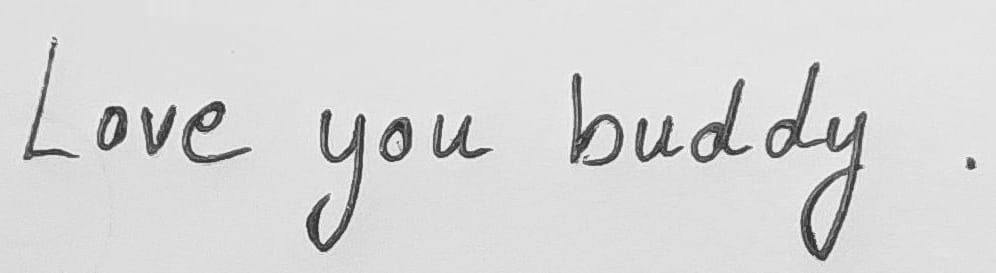 Love you buddy .